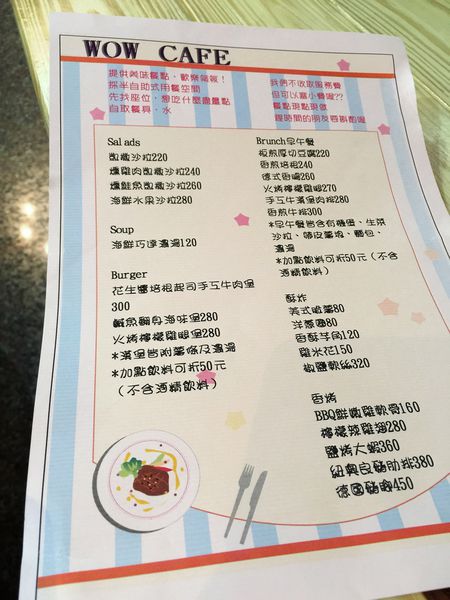 WOW CAFE
提供美味餐點，歡樂氣氛！
採半自助式用餐空間
先找座位，想吃什麼畫點
自取餐具、水
我們不收取服務費
但可以當小費喔??
餐點現點現做
趕時間的朋友要斟酌喔
Salads
凱薩沙拉220
燻雞肉凱薩沙拉240
燻鮭魚凱薩沙拉260
海鮮水果沙拉280
Soup
海鮮巧達濃湯120
Burger
花生醬培根起司手工牛肉堡
300
鹹魚翻身海味堡280
火烤檸檬雞腿堡280
*漢堡皆附薯條及濃湯
*加點飲料可折50元
（不含酒精飲料）
Brunch早午餐
板煎厚切豆腐220
香煎培根240
德式香腸260
火烤檸檬雞腿270
手工牛漢堡肉排280
香煎牛排300
*早午餐皆含有機蛋、生菜
沙拉、帶皮薯塊、麵包、
濃湯
*加點飲料可折50元（不含
酒精飲料）
酥炸
美式脆薯80
洋蔥圈80
香酥芋角120
雞米花150
椒鹽軟絲320
香烤
BBQ鮮嫩雞軟骨160
檸檬辣雞翅280
鹽烤大蝦360
紐奧良豬肋排380
德國豬腳450